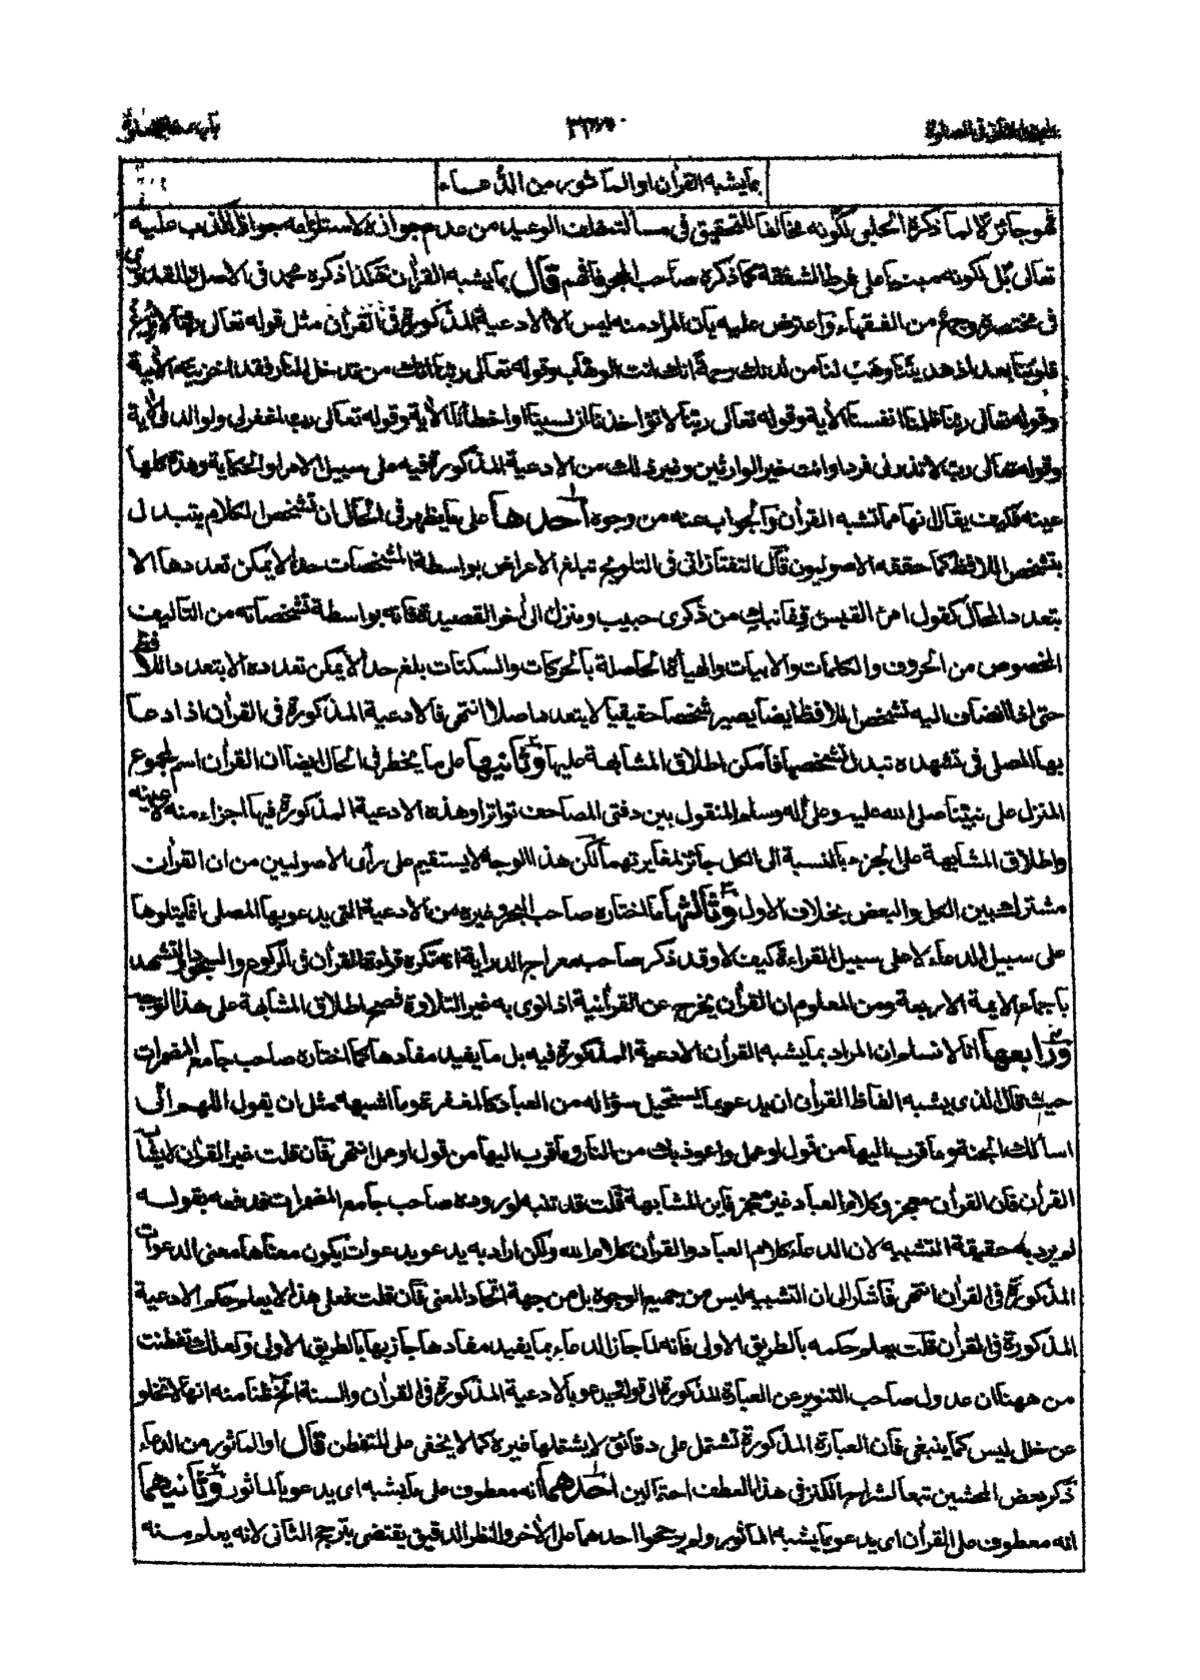 بما يشبه القرآن او الماثور من الدعاء
فهو جائز لا لما ذكره الحلبي لكونه مخالفا للتحقيق في مسألة خلف الوعيد من عدم جوازه لاستلزامه جواز الكذب عليه
تعالى بل لكونه مبنيا على فرط الشفقة كما ذكره صاحب البحر فافهم قال بما يشبه القرآن هكذا ذكره محمد في الاصل والقدوري
في مختصره وجمع من الفقهاء واعترض عليه بان المراد منه ليس الا الادعية المذكورة في القرآن مثل قوله تعالى ربنا لا تزغ
قلوبنا بعد اذ هديتنا وهب لنا من لدنك رحمة انك انت الوهاب وقوله تعالى ربنا انك من تدخل النار فقد اخزيته الآية
وقوله تعالى ربنا ظلمنا انفسنا الآية وقوله تعالى ربنا لا تؤاخذنا ان نسينا او اخطأنا الآية وقوله تعالى رب اغفر لي ولوالدي الآية
وقوله تعالى رب لا تذرني فردا وانت خير الوارثين وغير ذلك من الادعية المذكورة فيه على سبيل الامر او الحكاية وهذه كلها
عينه فكيف يقال انها مما تشبه القرآن والجواب عنه من وجوه احدها على ما يظهر في الحال ان تشخص الكلام يتبدل
بتشخص اللافظ كما حققه الاصوليون قال التفتازاني في التلويح تبلغ الاعراض بواسطة المشخصات حدا لا يمكن تعددها الا
بتعدد المحال كقول امرئ القيس قفا نبك من ذكرى حبيب ومنزل الى آخر القصيدة فانه بواسطة تشخصاته من التاليف
المخصوص من الحروف والكلمات والابيات والهيأة الحاصلة بالحركات والسكنات بلغ حدا لا يمكن تعدده الا بتعدد اللافظ
حتى اذا انضاف اليه تشخص اللافظ ايضا يصير شخصا حقيقيا لا يتعدد اصلا انتهى فالادعية المذكورة في القرآن اذا دعا
بها المصلي في تشهده تبدل تشخصها فامكن اطلاق المشابهة عليها وثانيها على ما يخطر في الحال ايضا ان القرآن اسم لمجموع
المنزل على نبينا صلى الله عليه وعلى آله وسلم المنقول بين دفتي المصاحف تواترا وهذه الادعية المذكورة فيها اجزاء منه لا عينه
واطلاق المشابهة على الجزء بالنسبة الى الكل جائز لمغايرتهما لكن هذا الوجه لا يستقيم على رأى الاصوليين من ان القرآن
مشترك بين الكل والبعض بخلاف الاول وثالثها ما اختاره صاحب البحر وغيره من الادعية التي يدعو بها المصلي انما يتلوها
على سبيل الدعاء لا على سبيل القراءة كيف لا وقد ذكر صاحب معراج الدراية انه تكره قراءة القرآن في الركوع والسجود والتشهد
باجماع الايمة الاربعة ومن المعلوم ان القرآن يخرج عن القرآنية اذا نوى به غير التلاوة فصح اطلاق المشابهة على هذا الوجه
ورابعها انا لا نسلم ان المراد بما يشبه القرآن الادعية المذكورة فيه بل ما يفيد مفادها كما اختاره صاحب جامع المضمرات
حيث قال الذي يشبه الفاظ القرآن ان يدعو بما يستحيل سؤاله من العباد كالمغفرة وما اشبهه مثل ان يقول اللهم اني
اسألك الجنة وما قرب اليها من قول او عمل واعوذ بك من النار وما قرب اليها من قول او عمل انتهى فان قلت غير القرآن لا يشابه
القرآن فان القرآن معجز وكلام العباد غير معجز فاين المشابهة قلت قد تنبه لوروده صاحب جامع المضمرات فدفعه بقوله
لم يرد به حقيقة التشبيه لان الدعاء كلام العباد والقرآن كلام الله ولكن اراد به يدعو بدعوات يكون معناها معنى الدعوات
المذكورة في القرآن انتهى فاشار الى ان التشبيه ليس من جميع الوجوه بل من جهة اتحاد المعنى فان قلت فعلى هذا لا يعلم حكم الادعية
المذكورة في القرآن قلت يعلم حكمه بالطريق الاولى فانه لما جاز الدعاء بما يفيد مفادها جاز بها بالطريق الاولى ولعلك تفطنت
من ههنا ان عدول صاحب التنوير عن العبارة المذكورة الى قوله يدعو بالادعية المذكورة في القرآن والسنة ظنا منه انها لا تخلو
عن خلل ليس كما ينبغي فان العبارة المذكورة تشتمل على دقائق لا يشتملها غيره كما لا يخفى على المتفطن قال او الماثور من الدعاء
ذكر بعض المحشين تبعا لشراح الكنز في هذا العطف احتمالين احدهما انه معطوف على ما يشبه اى يدعو بالماثور وثانيهما
انه معطوف على القرآن اى يدعو بما يشبه الماثور ولم يرجحوا احدهما على الآخر والنظر الدقيق يقتضي بترجيح الثاني لانه يعلم منه